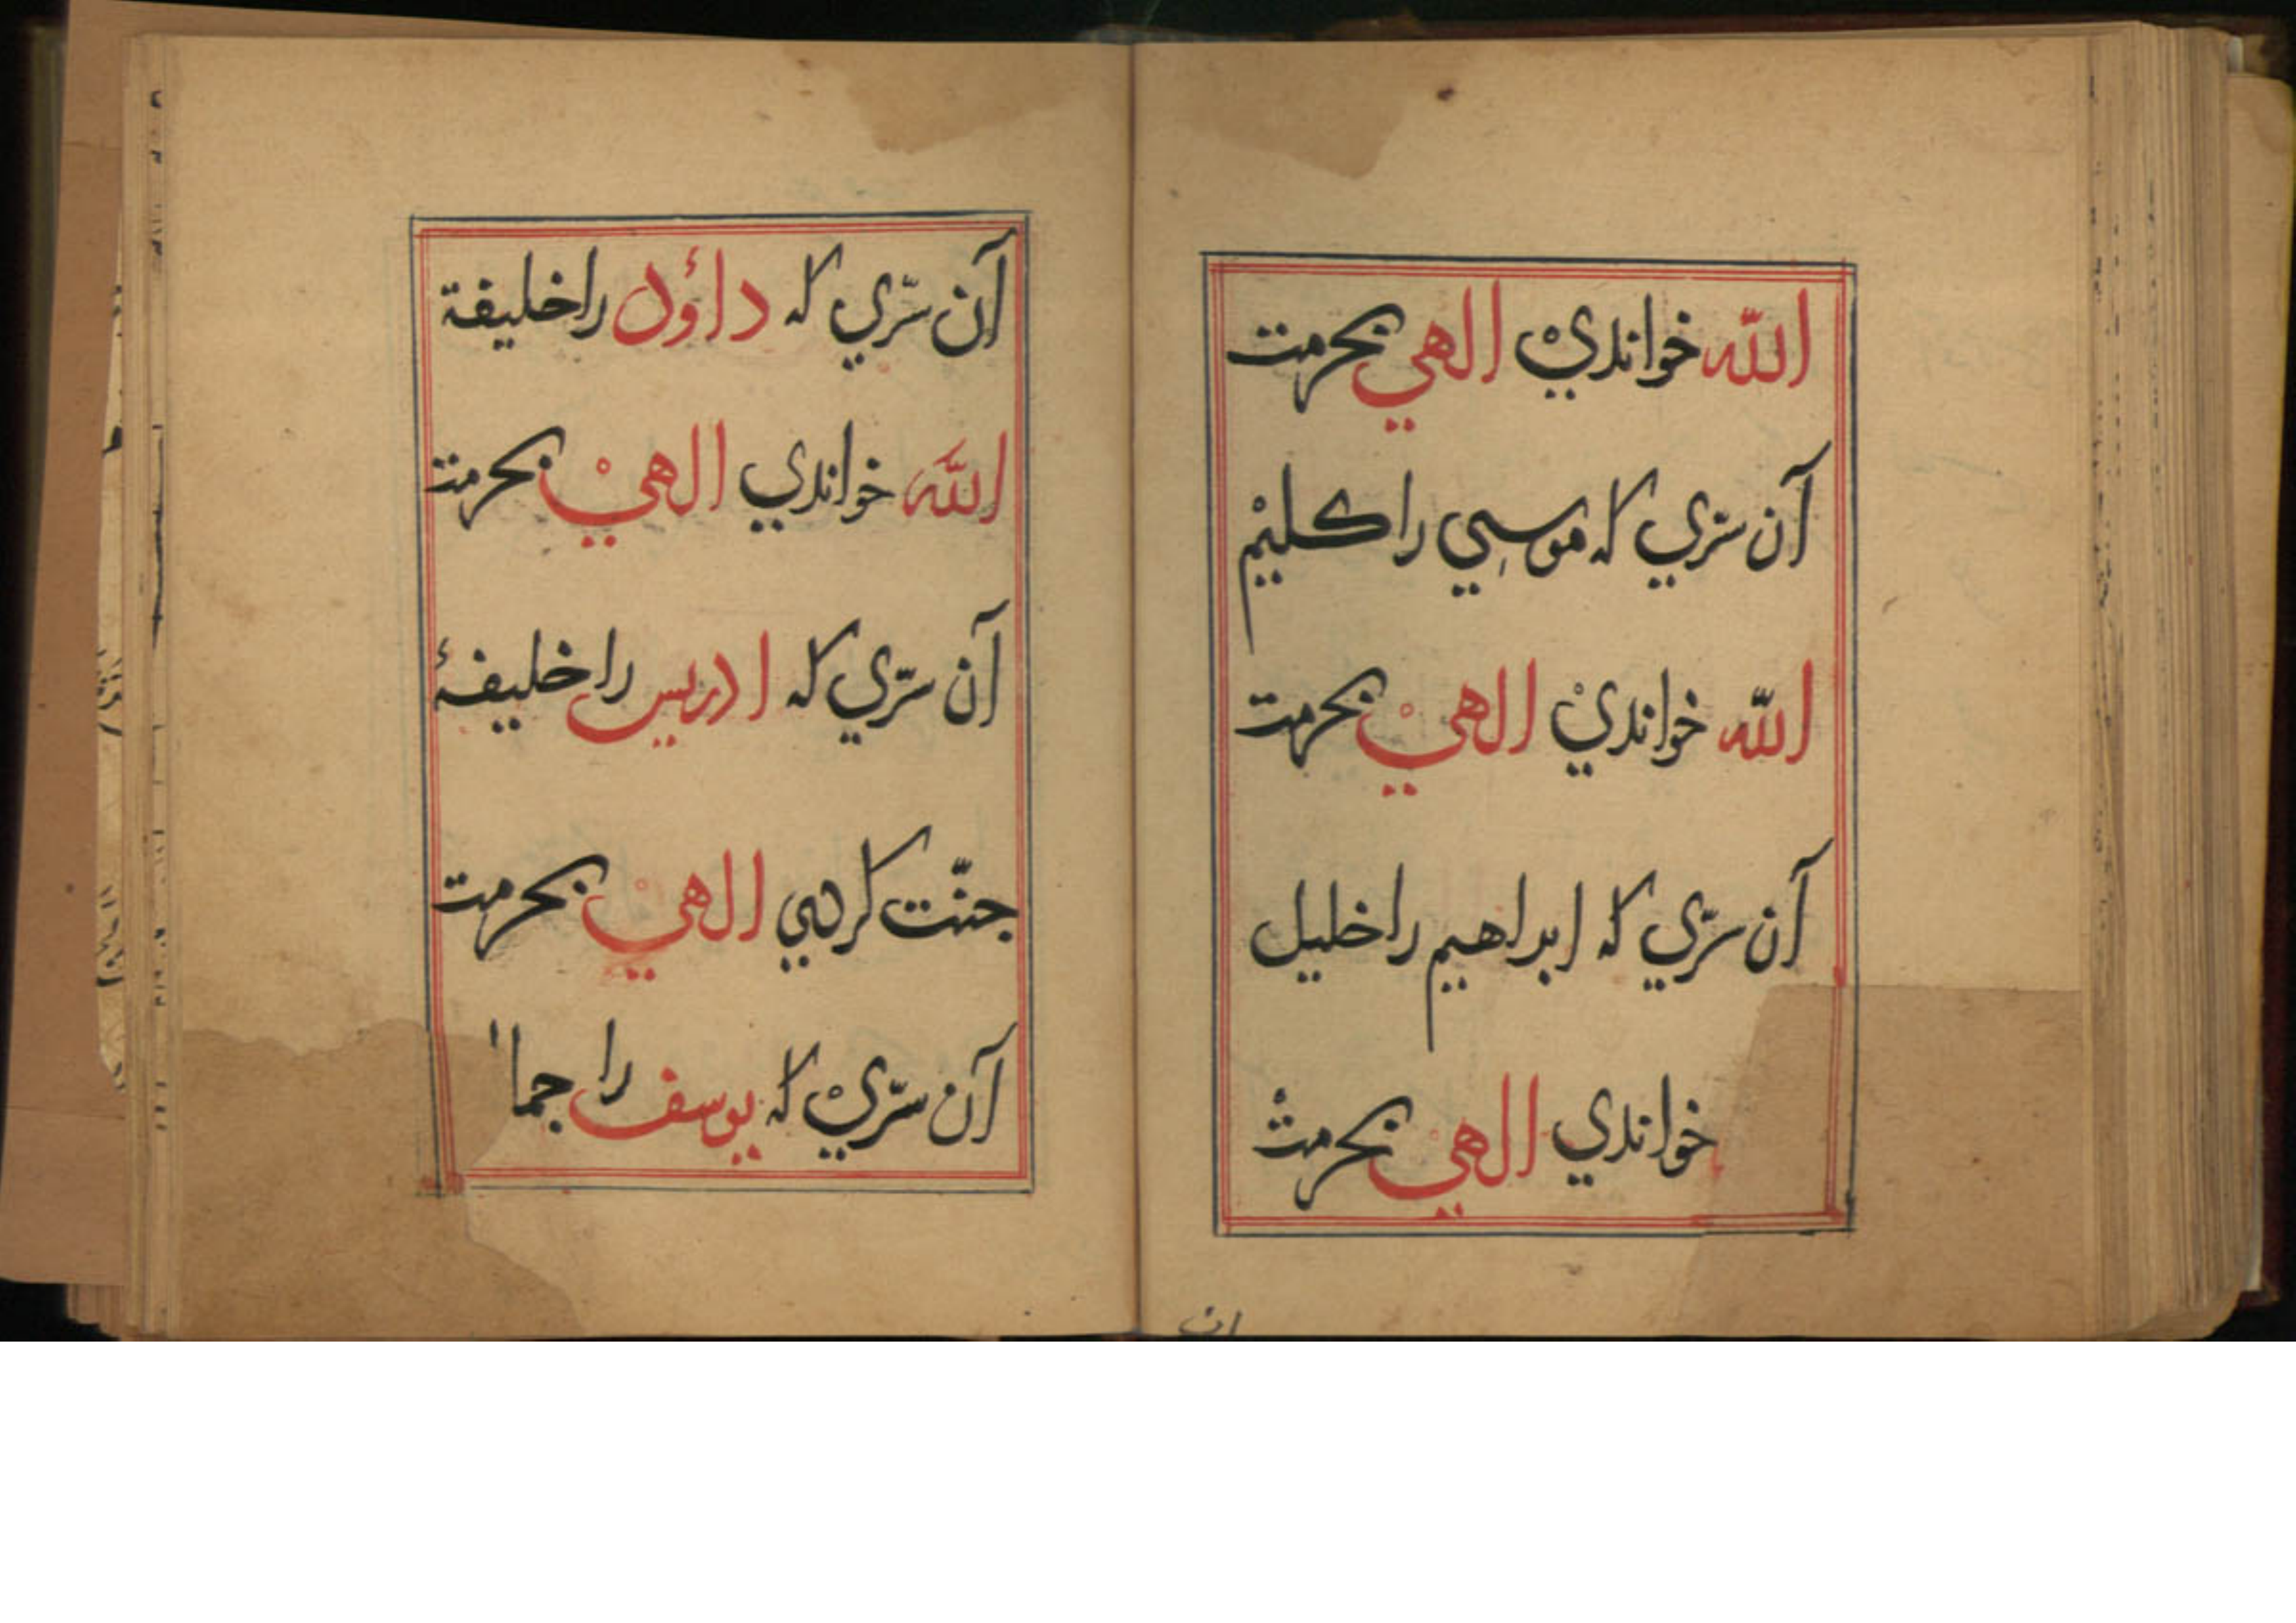 الله خواندي الهي بحرمت
آن سرّي كه موسي را كليم
الله خواندي الهي بحرمت
آن سرّي كه ابراهيم را خليل
خواندي الهي بحرمت
ان
آن سرّي كه داؤد را خليفة
الله خواندي الهي بحرمت
آن سرّي كه ادريس را خليفۀ
جنّت كردي الهي بحرمت
آن سرّي كه يوسف را